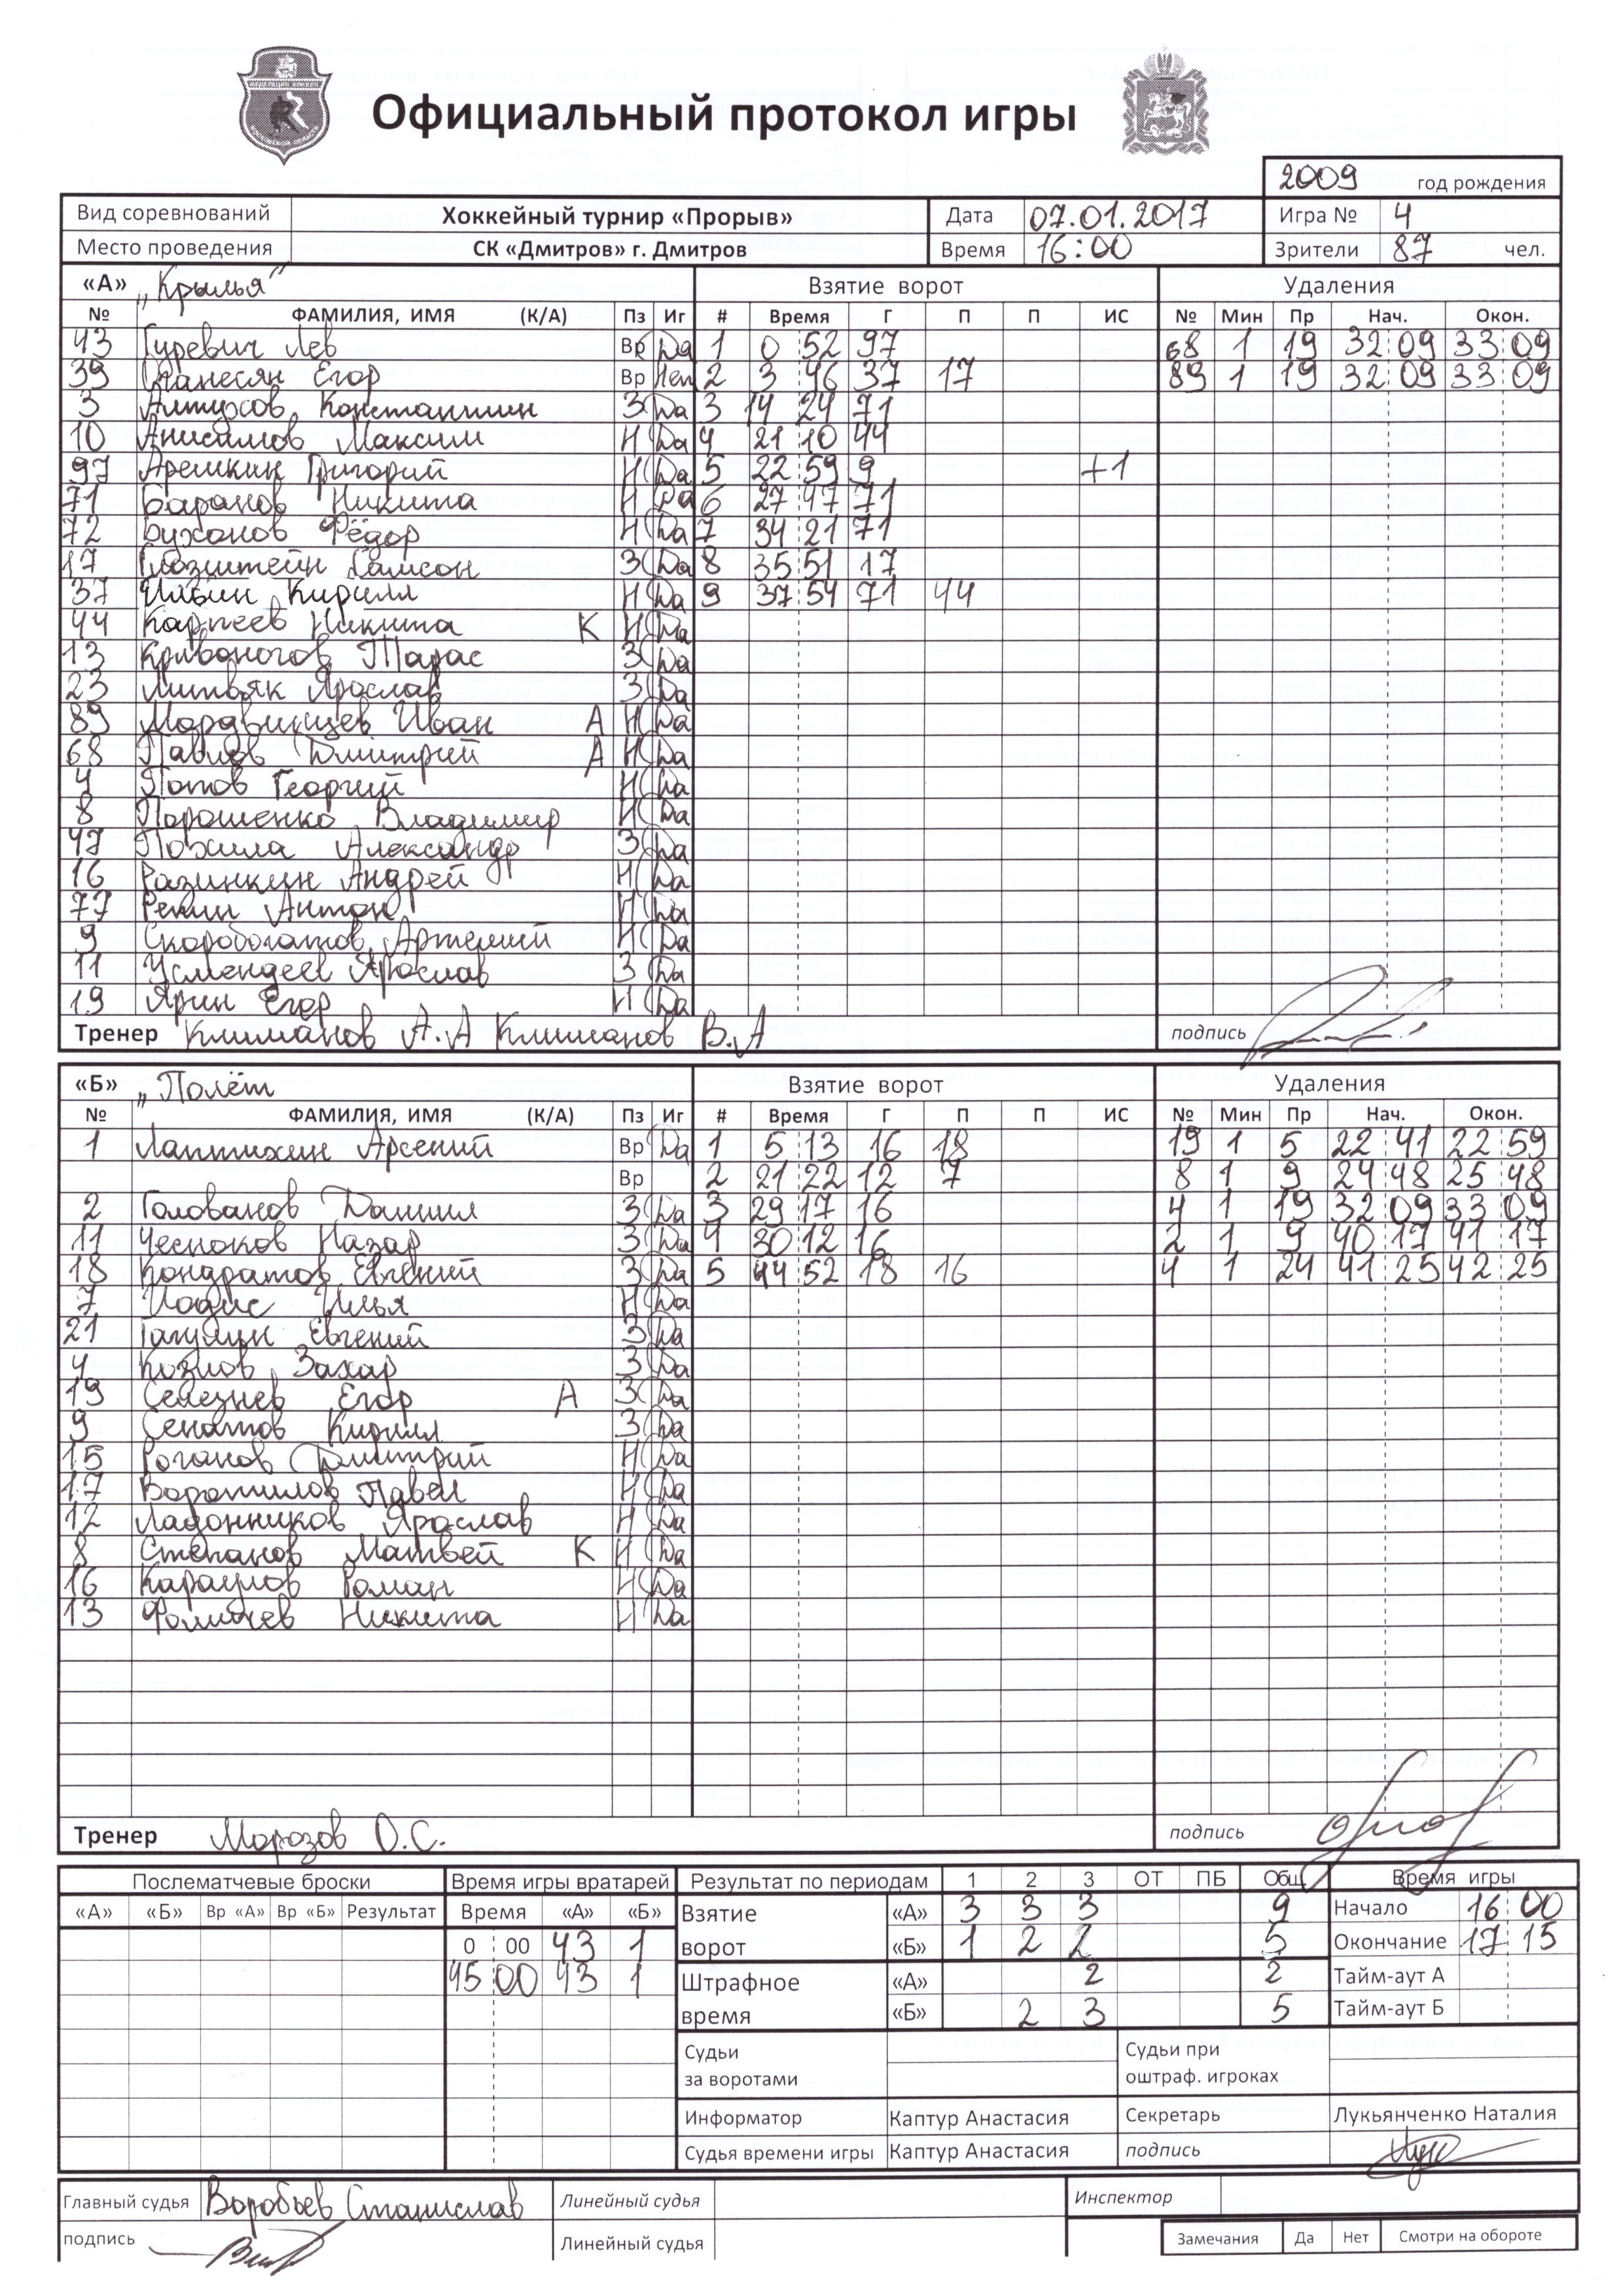 Официальный протокол игры
2009 год рождения
Вид соревнований Хоккейный турнир «Прорыв» Дата 07.01.2017 Игра № 4
Место проведения СК «Дмитров» г. Дмитров Время 16:00 Зрители 87 чел.
«А» „Крылья" Взятие ворот Удаления
№ ФАМИЛИЯ, ИМЯ (К/А) Пз Иг # Время Г П П ИС № Мин Пр Нач. Окон.
43 Гуревич Лев Вр Да 1 0 52 97 68 1 19 32 09 33 09
39 Оганесян Егор Вр Нет 2 3 46 37 17 89 1 19 32 09 33 09
3 Алтухов Константин З Да 3 14 24 71
10 Анисимов Максим Н Да 4 21 10 44
97 Арешкин Григорий Н Да 5 22 59 9 +1
71 Баранов Никита Н Да 6 27 47 71
72 Буханов Фёдор Н Да 7 34 21 71
17 Самсон З Да 8 35 51 17
37 Ильин Кирилл Н Да 9 37 54 71 44
44 Карпеев Никита К Н Да
13 Кривоногов Тарас З Да
23 Литвяк Ярослав З Да
89 Мордвинцев Иван А Н Да
68 Павлов Дмитрий А Н Да
4 Попов Георгий Н Да
8 Порошенко Владимир Н Да
47 Похила Александр З Да
16 Разинкин Андрей Н Да
77 Репин Антон Н Да
9 Скоробогатов Артемий Н Да
11 Усмендеев Ярослав З Да
19 Ярин Егор Н Да
Тренер Климанов А.А Климанов В.А подпись
«Б» „Полёт Взятие ворот Удаления
№ ФАМИЛИЯ, ИМЯ (К/А) Пз Иг # Время Г П П ИС № Мин Пр Нач. Окон.
1 Лаптихин Арсений Вр Да 1 5 13 16 18 19 1 5 22 41 22 59
Вр 2 21 22 12 7 8 1 9 24 48 25 48
2 Голованов Даниил З Да 3 29 17 16 4 1 19 32 09 33 09
11 Чесноков Назар З Да 4 30 12 16 2 1 9 40 17 41 17
18 Кондратов Евгений З Да 5 44 52 18 16 4 1 24 41 25 42 25
7 Йодис Илья Н Да
21 Евгений З Да
4 Козлов Захар З Да
19 Селезнев Егор А З Да
9 Сенатов Кирилл З Да
15 Роганов Дмитрий Н Да
17 Воротилов Павел Н Да
12 Ладонников Ярослав Н Да
8 Степанов Матвей К Н Да
16 Караулов Роман Н Да
13 Фомичев Никита Н Да
Тренер Морозов О.С. подпись
Послематчевые броски Время игры вратарей Результат по периодам 1 2 3 ОТ ПБ Общ Время игры
«А» «Б» Вр «А» Вр «Б» Результат Время «А» «Б» Взятие «А» 3 3 3 9 Начало 16 00
0 00 43 1 ворот «Б» 1 2 2 5 Окончание 17 15
45 00 43 1 Штрафное «А» 2 2 Тайм-аут А
время «Б» 2 3 5 Тайм-аут Б
Судьи Судьи при
за воротами оштраф. игроках
Информатор Каптур Анастасия Секретарь Лукьянченко Наталия
Судья времени игры Каптур Анастасия подпись
Главный судья Воробьев Станислав Линейный судья Инспектор
подпись Линейный судья Замечания Да Нет Смотри на обороте